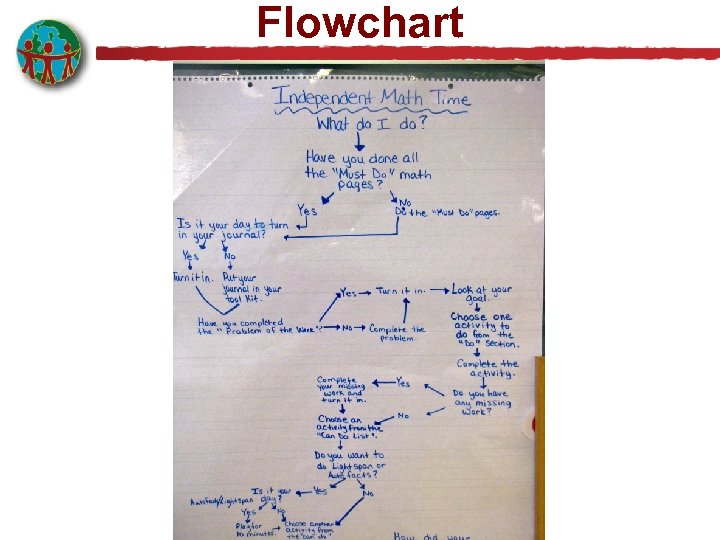 Flowchart
Independent Math Time
What do I do?
Have you done all
the "Must Do" math
pages?
Yes
No
Do the "Must Do" pages.
Is it your day to turn
in your journal?
Yes
No
Turn it in.
Put your
journal in your
tool kit.
Have you completed
the "Problem of the Week"?
Yes
Turn it in.
Look at your
goal.
No
Complete the
problem.
Choose one
activity to
do from the
"Do" section.
Complete the
activity.
Do you have
any missing
work?
Yes
Complete
your missing
work and
turn it in.
No
Choose an
activity from the
"Can Do List".
Do you want to
do Lightspan or
Autofacts?
Yes
No
Is it your
Autofacts/Lightspan day?
Yes
No
Play for
minutes.
Choose another
activity from
the "can do"
How did your